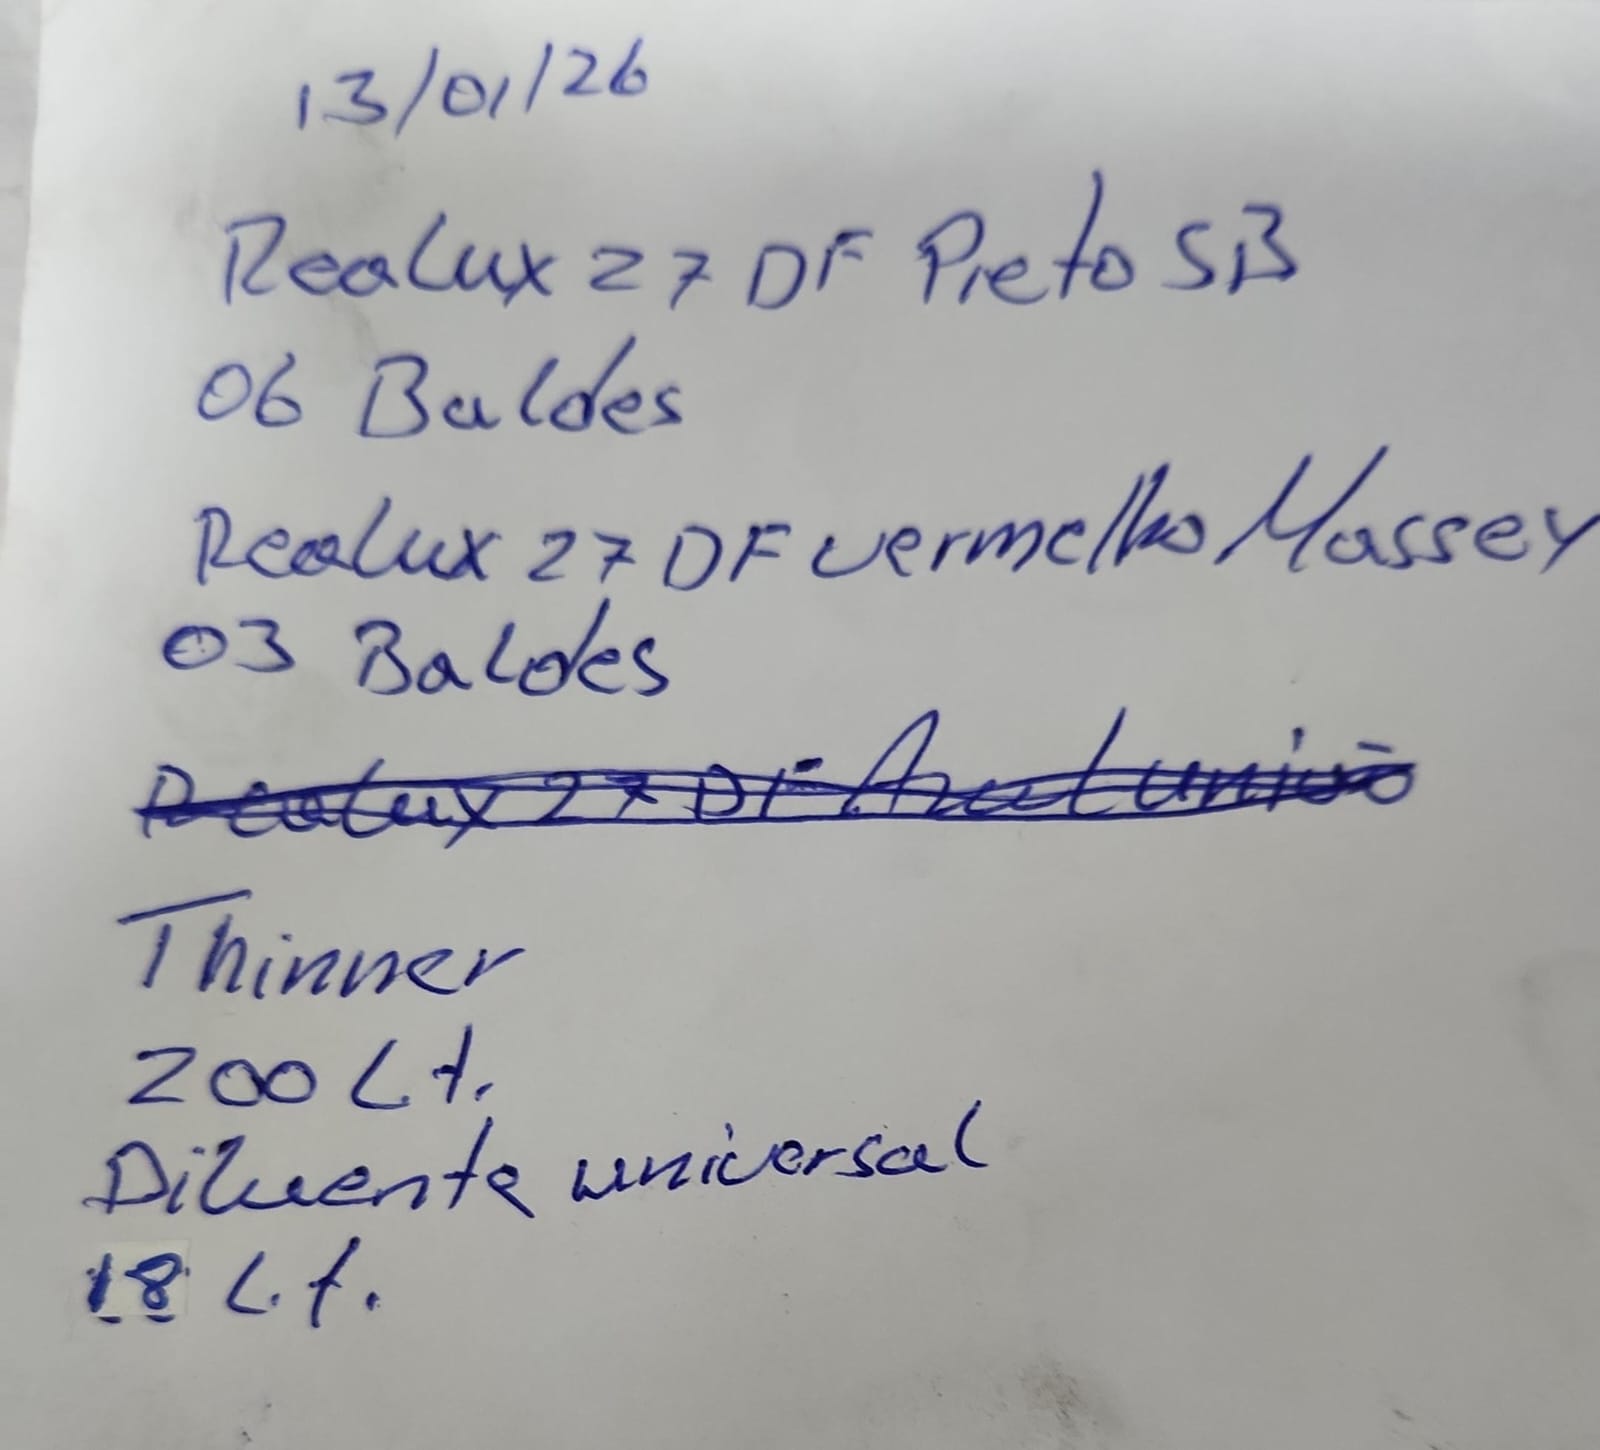 13/01/26
Realux 27 DF Preto SB
06 Baldes
Realux 27 DF vermelho Massey
03 Baldes
Realux 27 DF
Thinner
200 Lt.
Diluente universal
18 Lt.